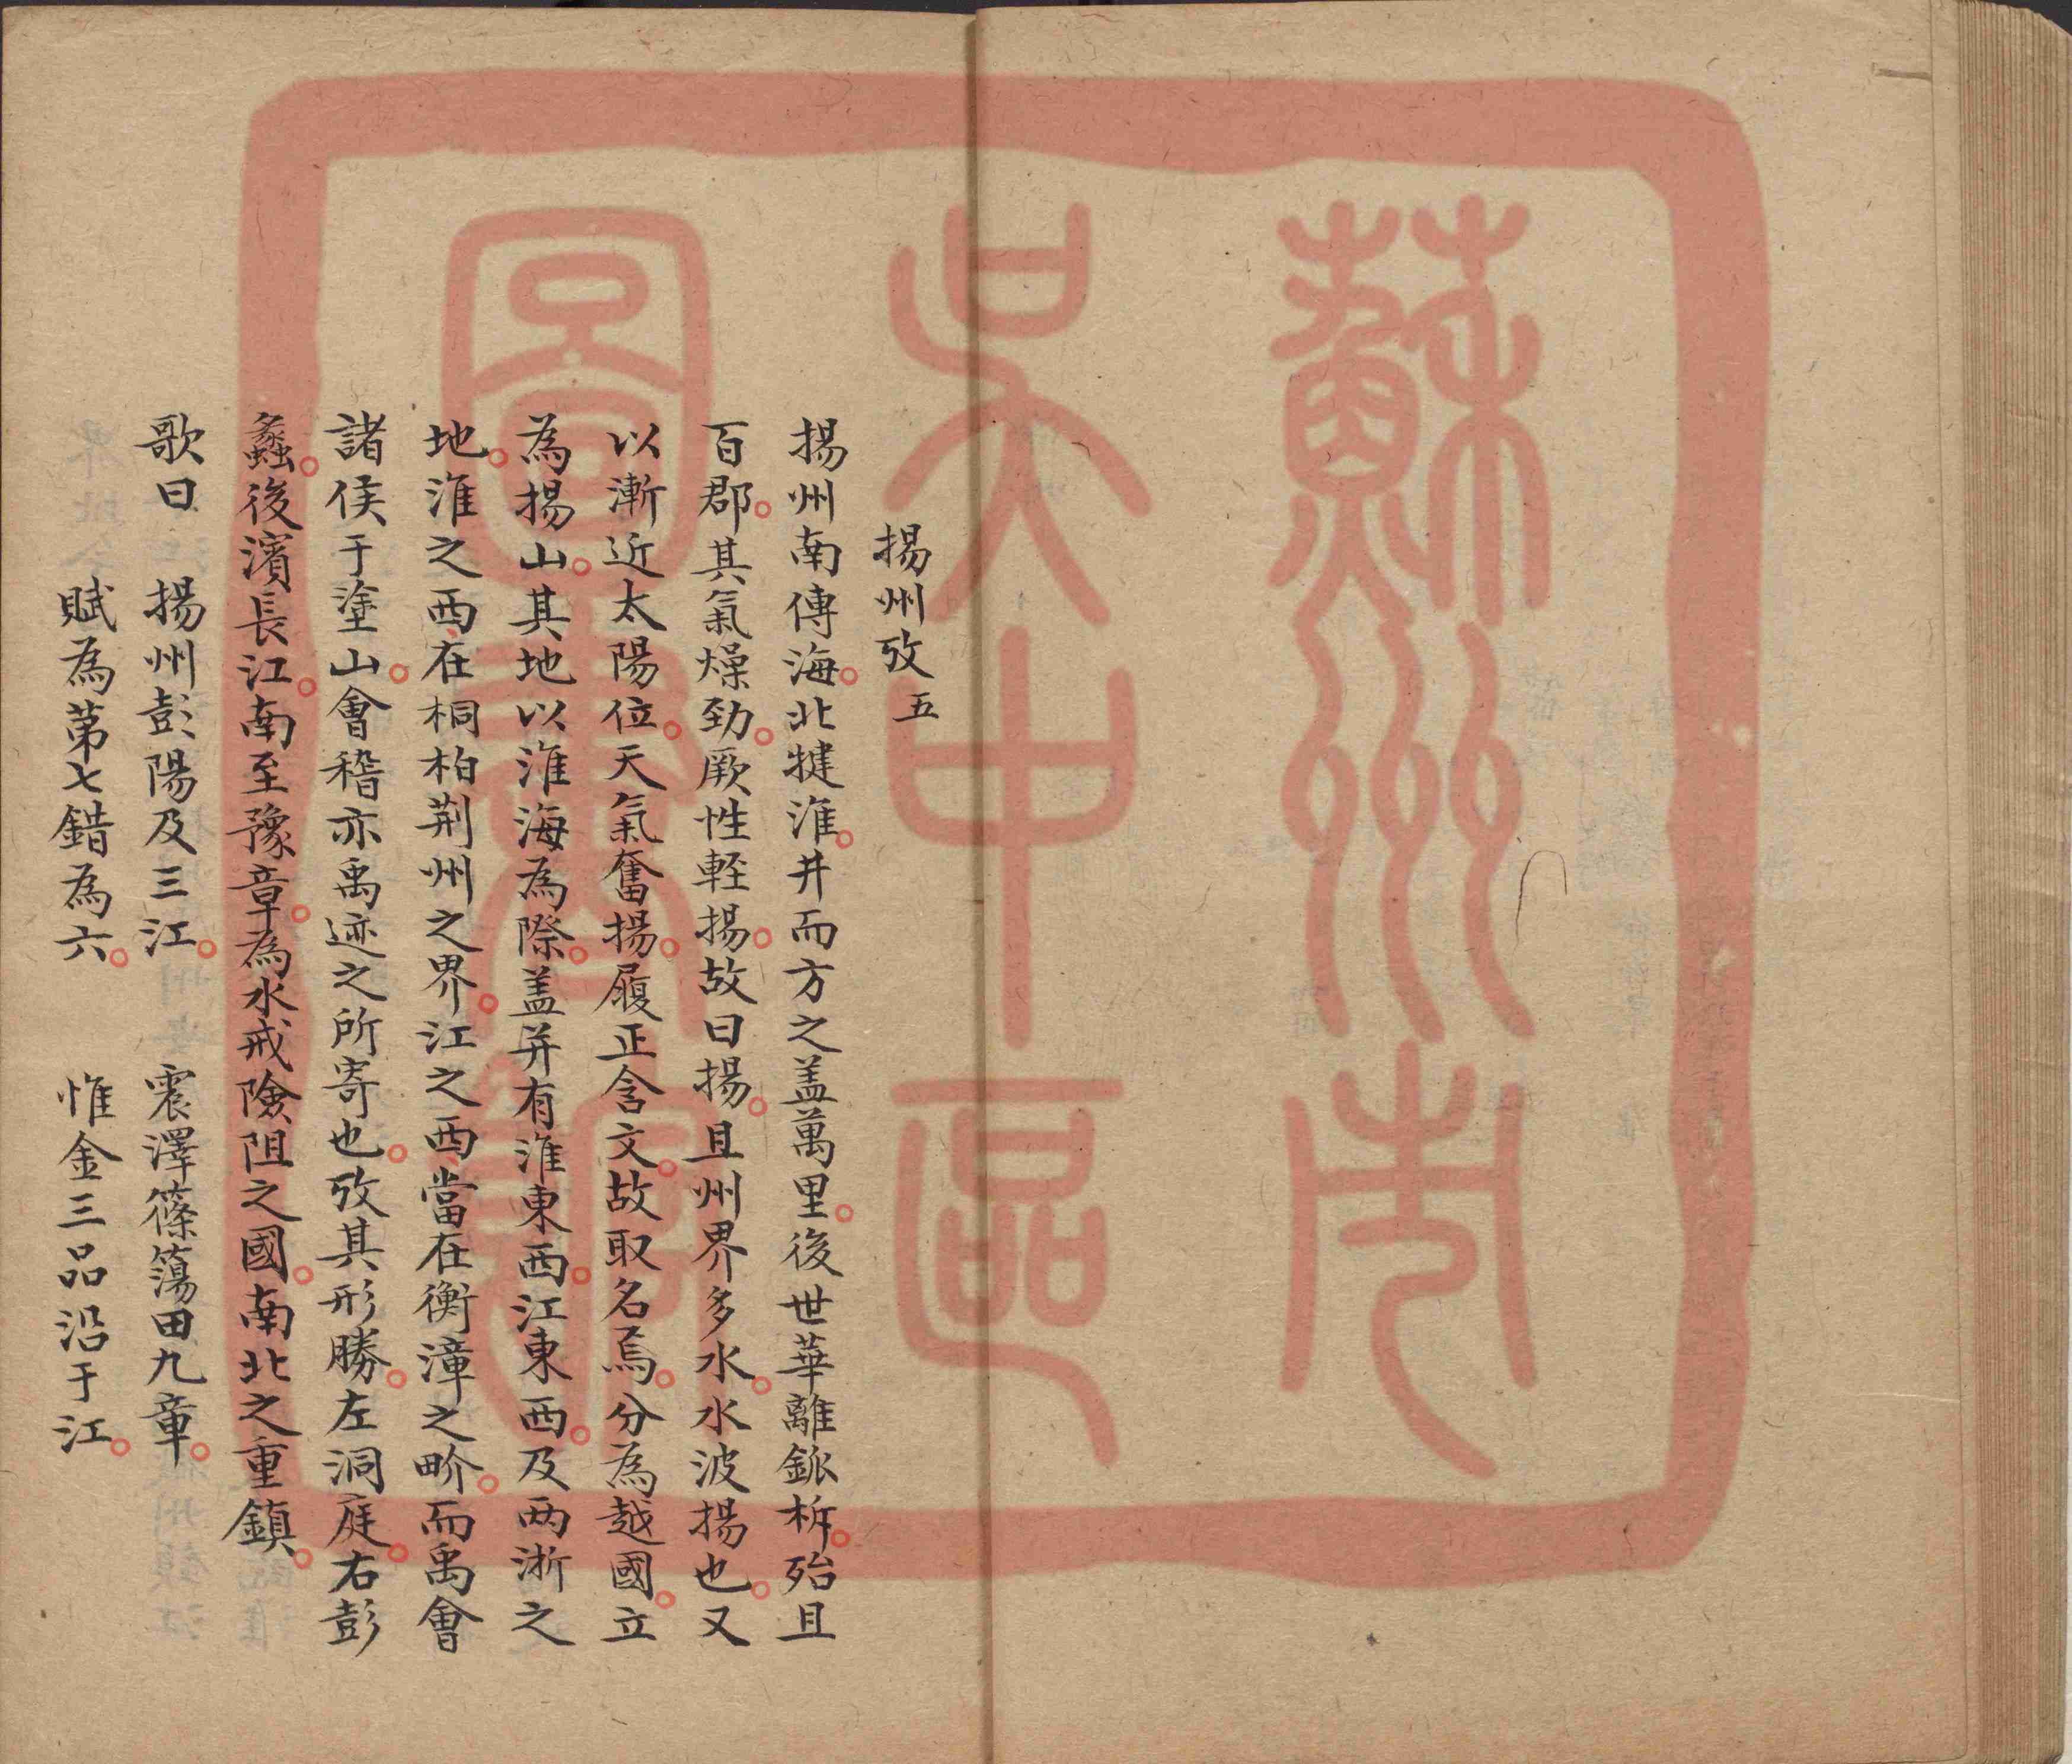 揚州攷 五
揚州南傳海北揵淮井而方之盖萬里後世華離鈲柝殆且
百郡其氣燥勁厥性輕揚故曰揚且州界多水水波揚也又
以漸近太陽位天氣奮揚履正含文故取名焉分為越國立
為揚山其地以淮海為際盖并有淮東西江東西及两浙之
地淮之西在桐柏荆州之界江之西當在衡漳之畍而禹會
諸侯于塗山會稽亦禹迹之所寄也攷其形勝左洞庭右彭
蠡後濱長江南至豫章為水戒險阻之國南北之重鎮
歌曰 揚州彭陽及三江 震澤篠簜田九章
賦為第七錯為六 惟金三品沿于江